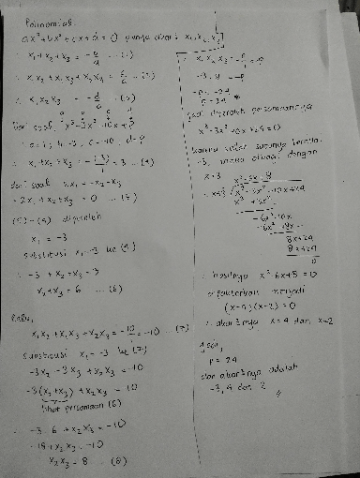 Polinomial
ax³+bx²+cx+d = 0 punya akar: x₁, x₂, x₃
∴ x₁+x₂+x₃ = -b/a ... (1)
∴ x₁x₂ + x₁x₃ + x₂x₃ = c/a ... (2)
∴ x₁x₂x₃ = -d/a ... (3)
Dari soal, x³-3x²-10x+p
∴ x₁+x₂+x₃ = = 3 ... (4)
dari soal
2x₁+x₂+x₃ = 0 ... (5)
(5)-(4) diperoleh
x₁ = -3
substitusi x₁=-3 ke (4)
∴ -3 + x₂+x₃ = 3
x₂+x₃ = 6 ... (6)
x₁x₂ + x₁x₃ + x₂x₃ = -10/1 = -10 ... (7)
substitusi x₁ = -3 ke (7)
-3x₂ -3x₃ + x₂x₃ = -10
-3(x₂+x₃) + x₂x₃ = -10
lihat persamaan (6)
∴ -3.6 + x₂x₃ = -10
-18 + x₂x₃ = -10
x₂x₃ = 8 ... (8)
∴ x₁x₂x₃ = -p/1 = -p
-3.8 = -p
-p = -24
p = 24
jadi diperoleh persamaannya
x³-3x²-10x+24=0
karena salah satunya
-3, maka dibagi dengan
x+3
x²-6x+8
x+3 x³-3x²-10x+24
x³+3x²
-6x²-10x
-6x²-18x
8x+24
8x+24
0
∴ hasilnya x²-6x+8=0
difaktorkan menjadi
(x-4)(x-2)=0
∴ akar²nya x=4 dan x=2
p = 24
dan akar²nya adalah
-3, 4 dan 2